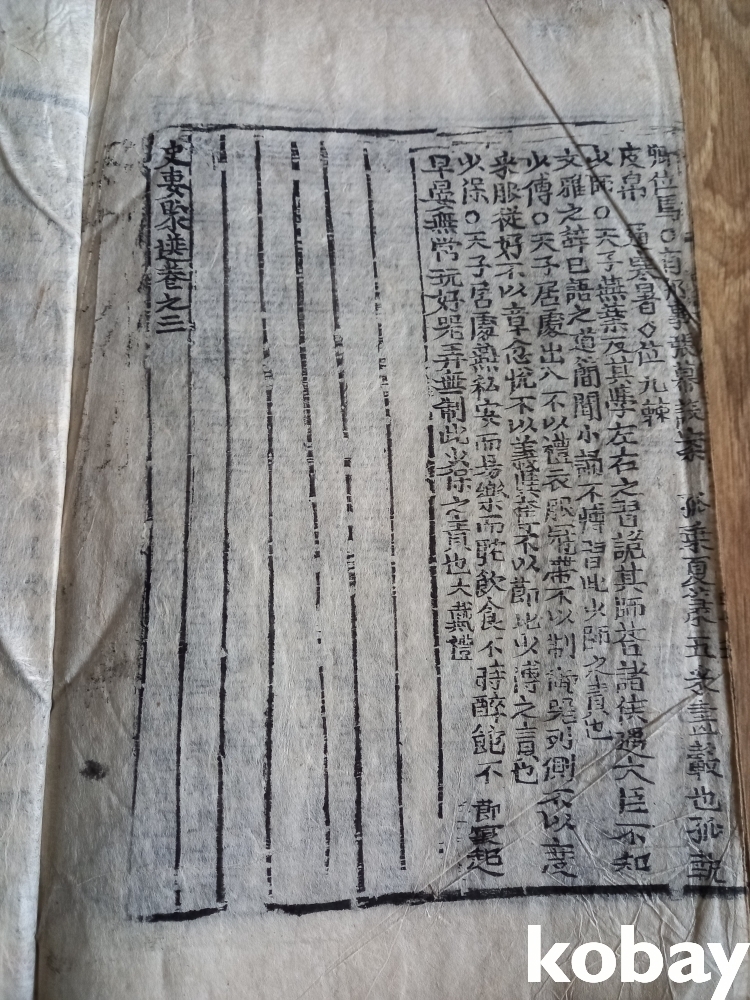 位焉○ 張幕設案 孤乘夏篆五采畫轂也孤執
皮帛 ○位九棘
少師○天子燕業反其學左右之習詭其師答諸侯遇大臣不知
文雅之辞已語之道簡聞小誦不博習此少師之責也
少傅○天子居處出入不以禮衣服冠帶不以制御器列側不以度
采服従好不以章忿悅不以義與奪不以節此少傅之責也
少保○天子居處燕私安而易樂而耽飲食不時醉飽不節寢起
早晏無常玩好器弄無制此少保之責也大戴禮
史要聚選卷之三
kobay